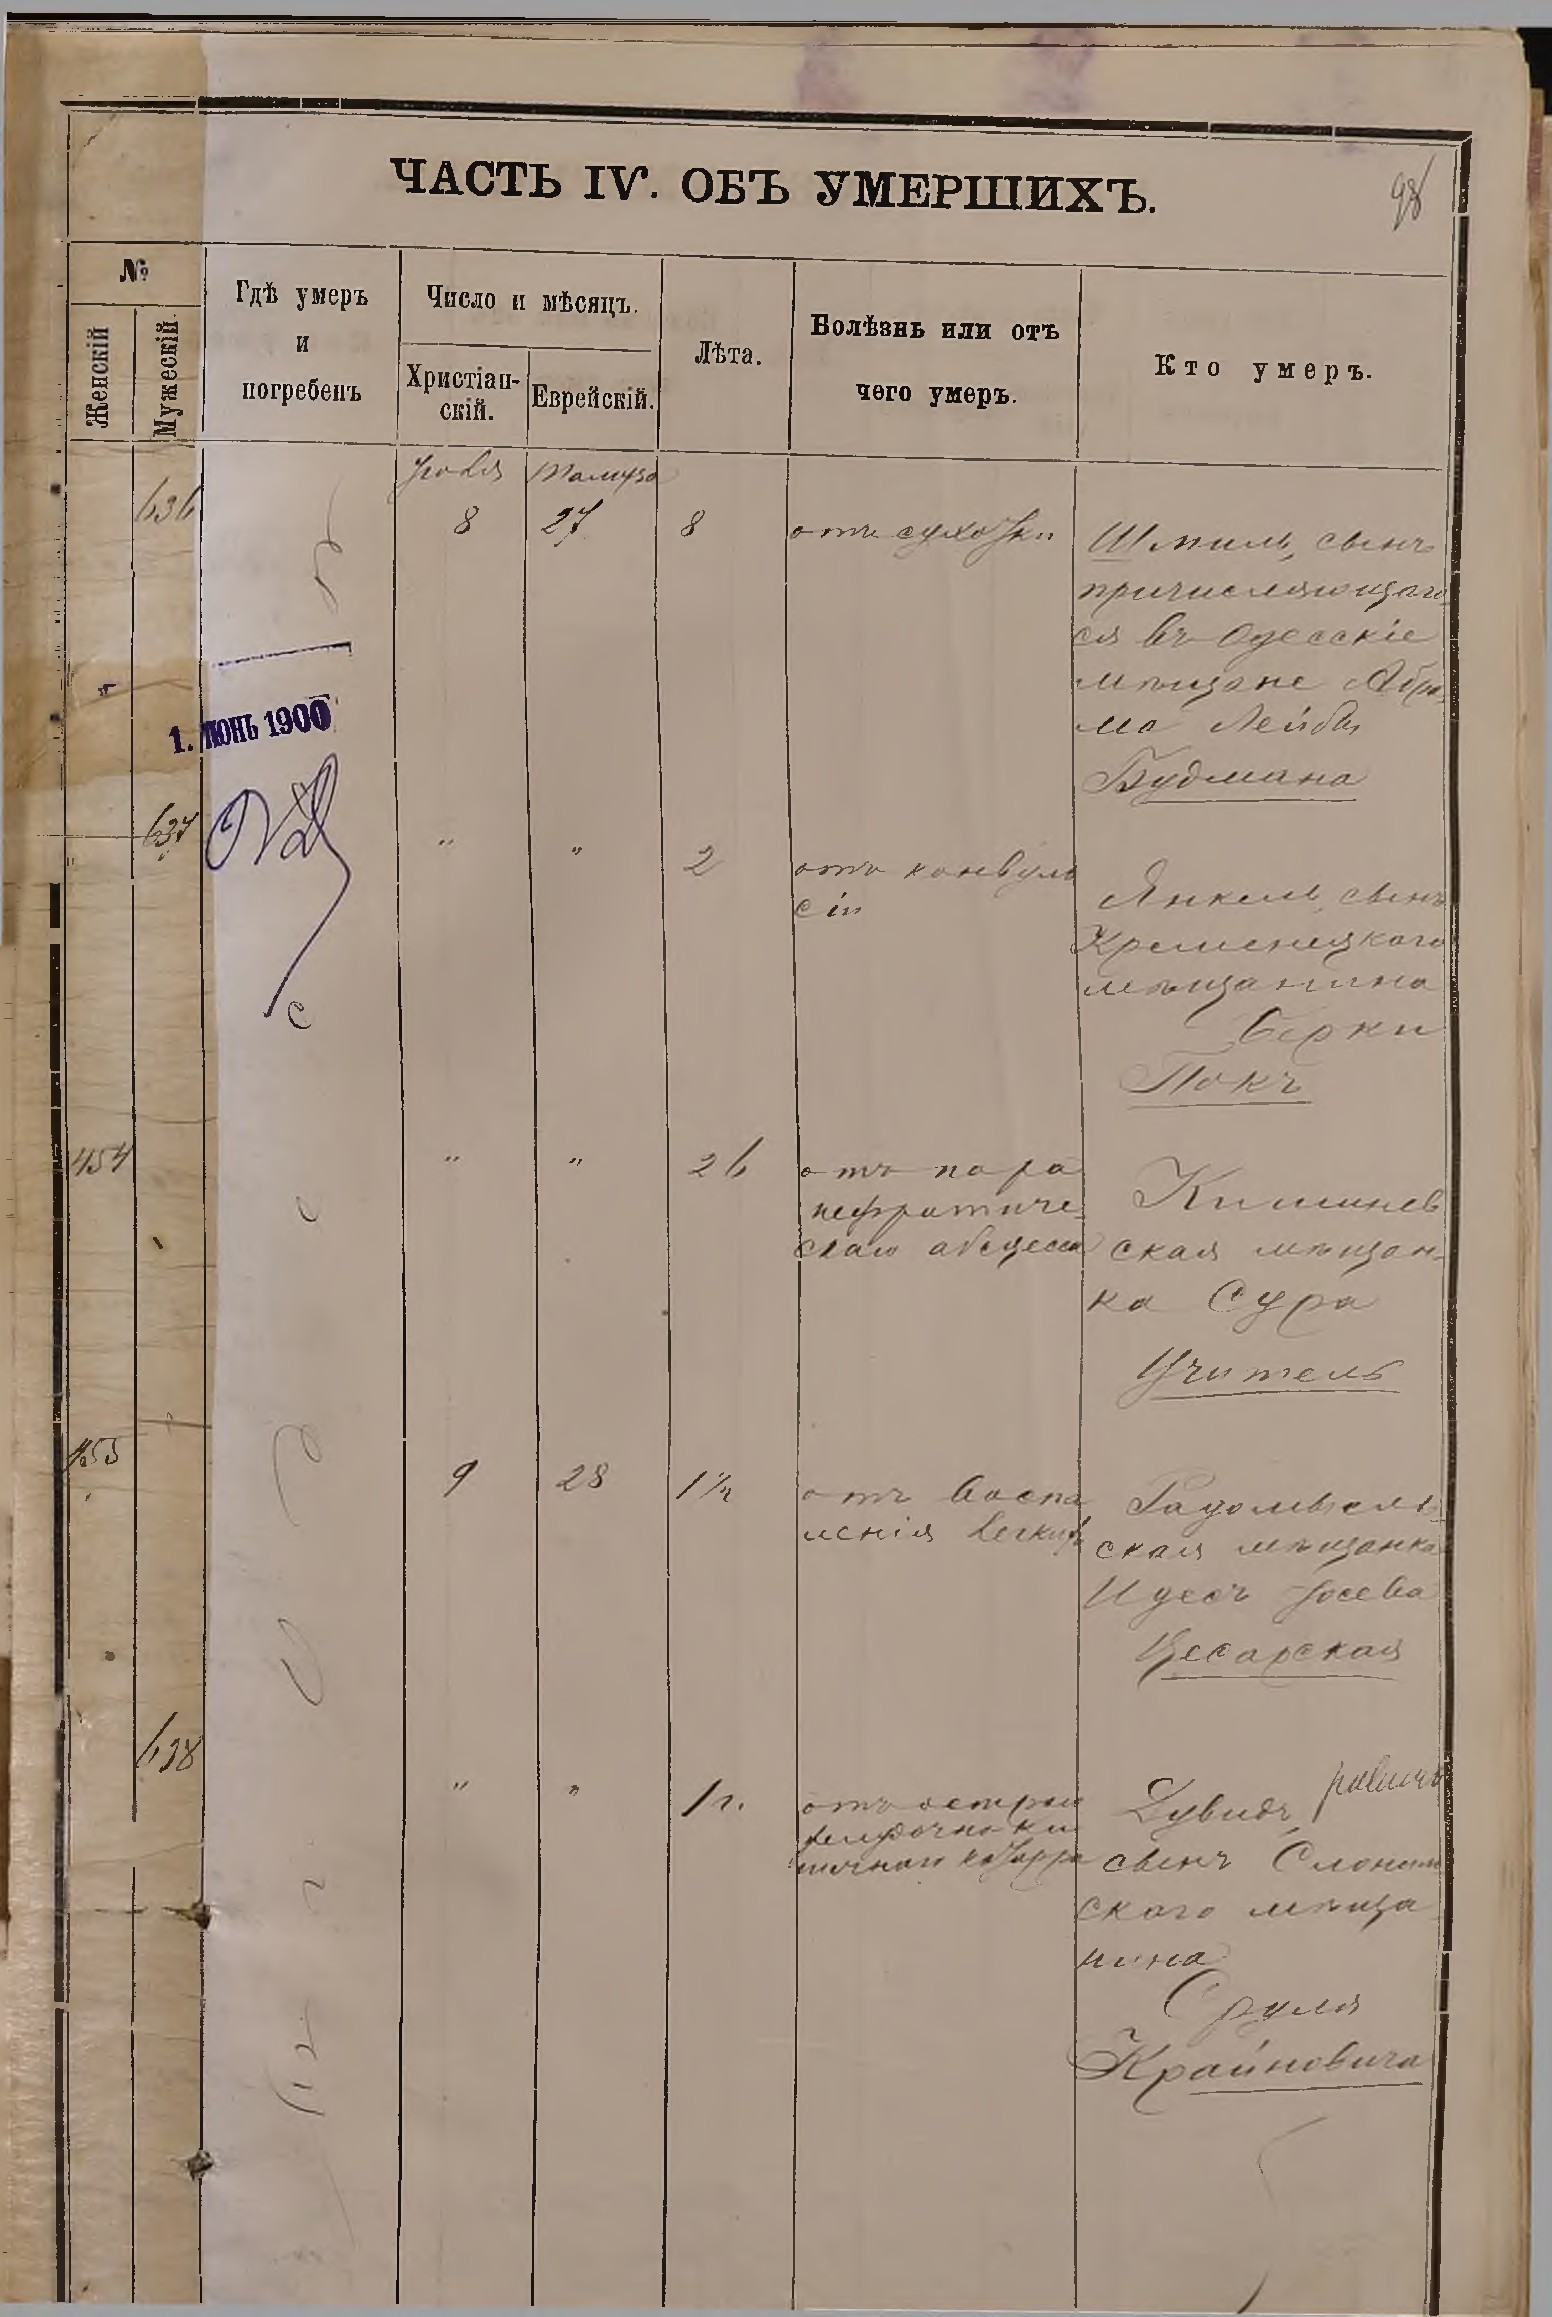 ЧАСТЬ IV. ОБЪ УМЕРШИХЪ.
98
№
Женскій
Мужескій.
Гдѣ умеръ
и
погребенъ
Число и мѣсяцъ.
Христіан-
скій.
Еврейскій.
Лѣта.
Болѣзнь или отъ
чего умеръ.
Кто умеръ.
Іюля
Тамуза
636
8
27
8
отъ сухотки
Шмиль, сынъ
причисляющаго
ся въ Одесскіе
мѣщане Абра-
ма Лейбы
Будмана
1. ІЮНЬ 1900
637
"
"
2
отъ конвуль
сіи
Янкель, сынъ
Кременецкаго
мѣщанина
Берки
Покъ
454
"
"
26
отъ пара
нефритиче-
скаго абсцесса
Кишинев
ская мѣщан-
ка Сура
Учитель
455
9
28
1½
отъ воспа
ленія легкихъ
Радомысль-
ская мѣщанка
Идесъ Іосева
Цесарская
638
"
"
1 г.
отъ остраго
желудочно-ки
шечнаго катарра
Дувидъ,
сынъ Слоним
скаго мѣща
нина
Сруля
Крайновича